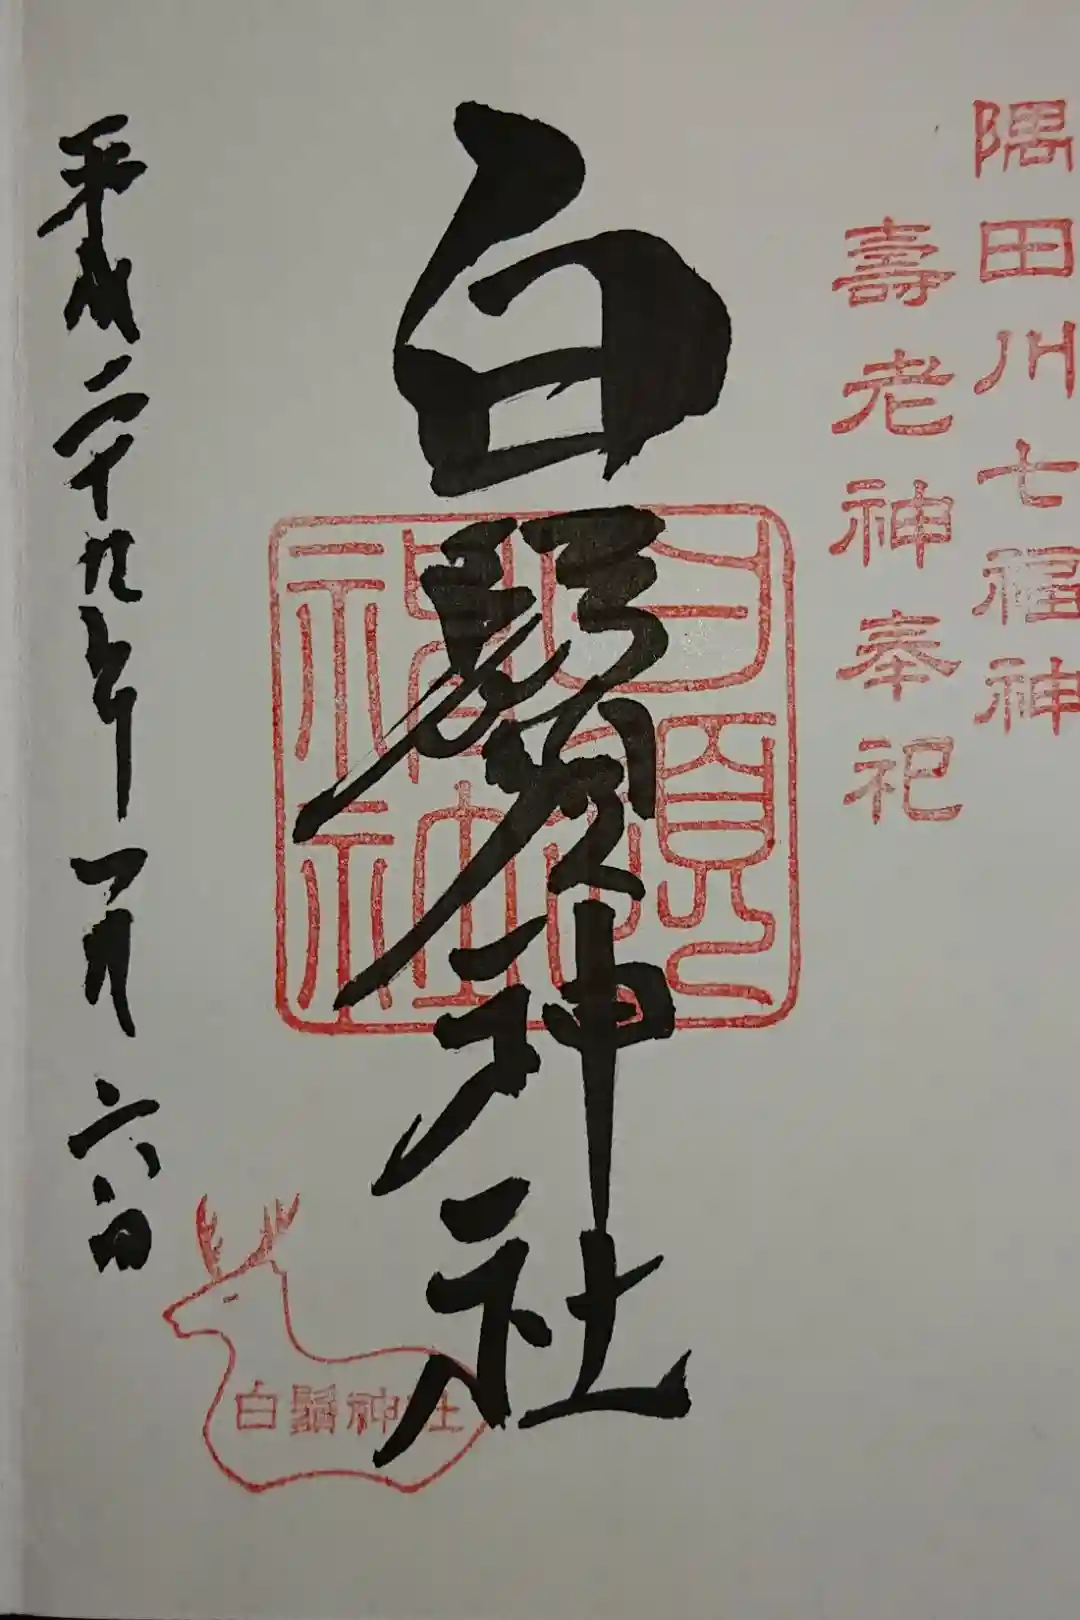 隅田川七福神
壽老神奉祀
白鬚神社
白鬚神社
平成二十九年一月六日
白鬚神社